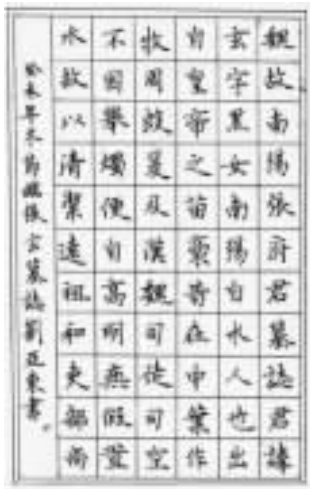 魏故南陽張府君墓誌君諱
玄字黑女南陽白水人也出
自皇帝之苗裔昔在中葉作
牧周殷爰及漢魏司徒司空
不因舉燭便自高明無假置
水故以清絜遠祖和吏部尚
癸未年冬節臨張玄墓誌劉正東書。